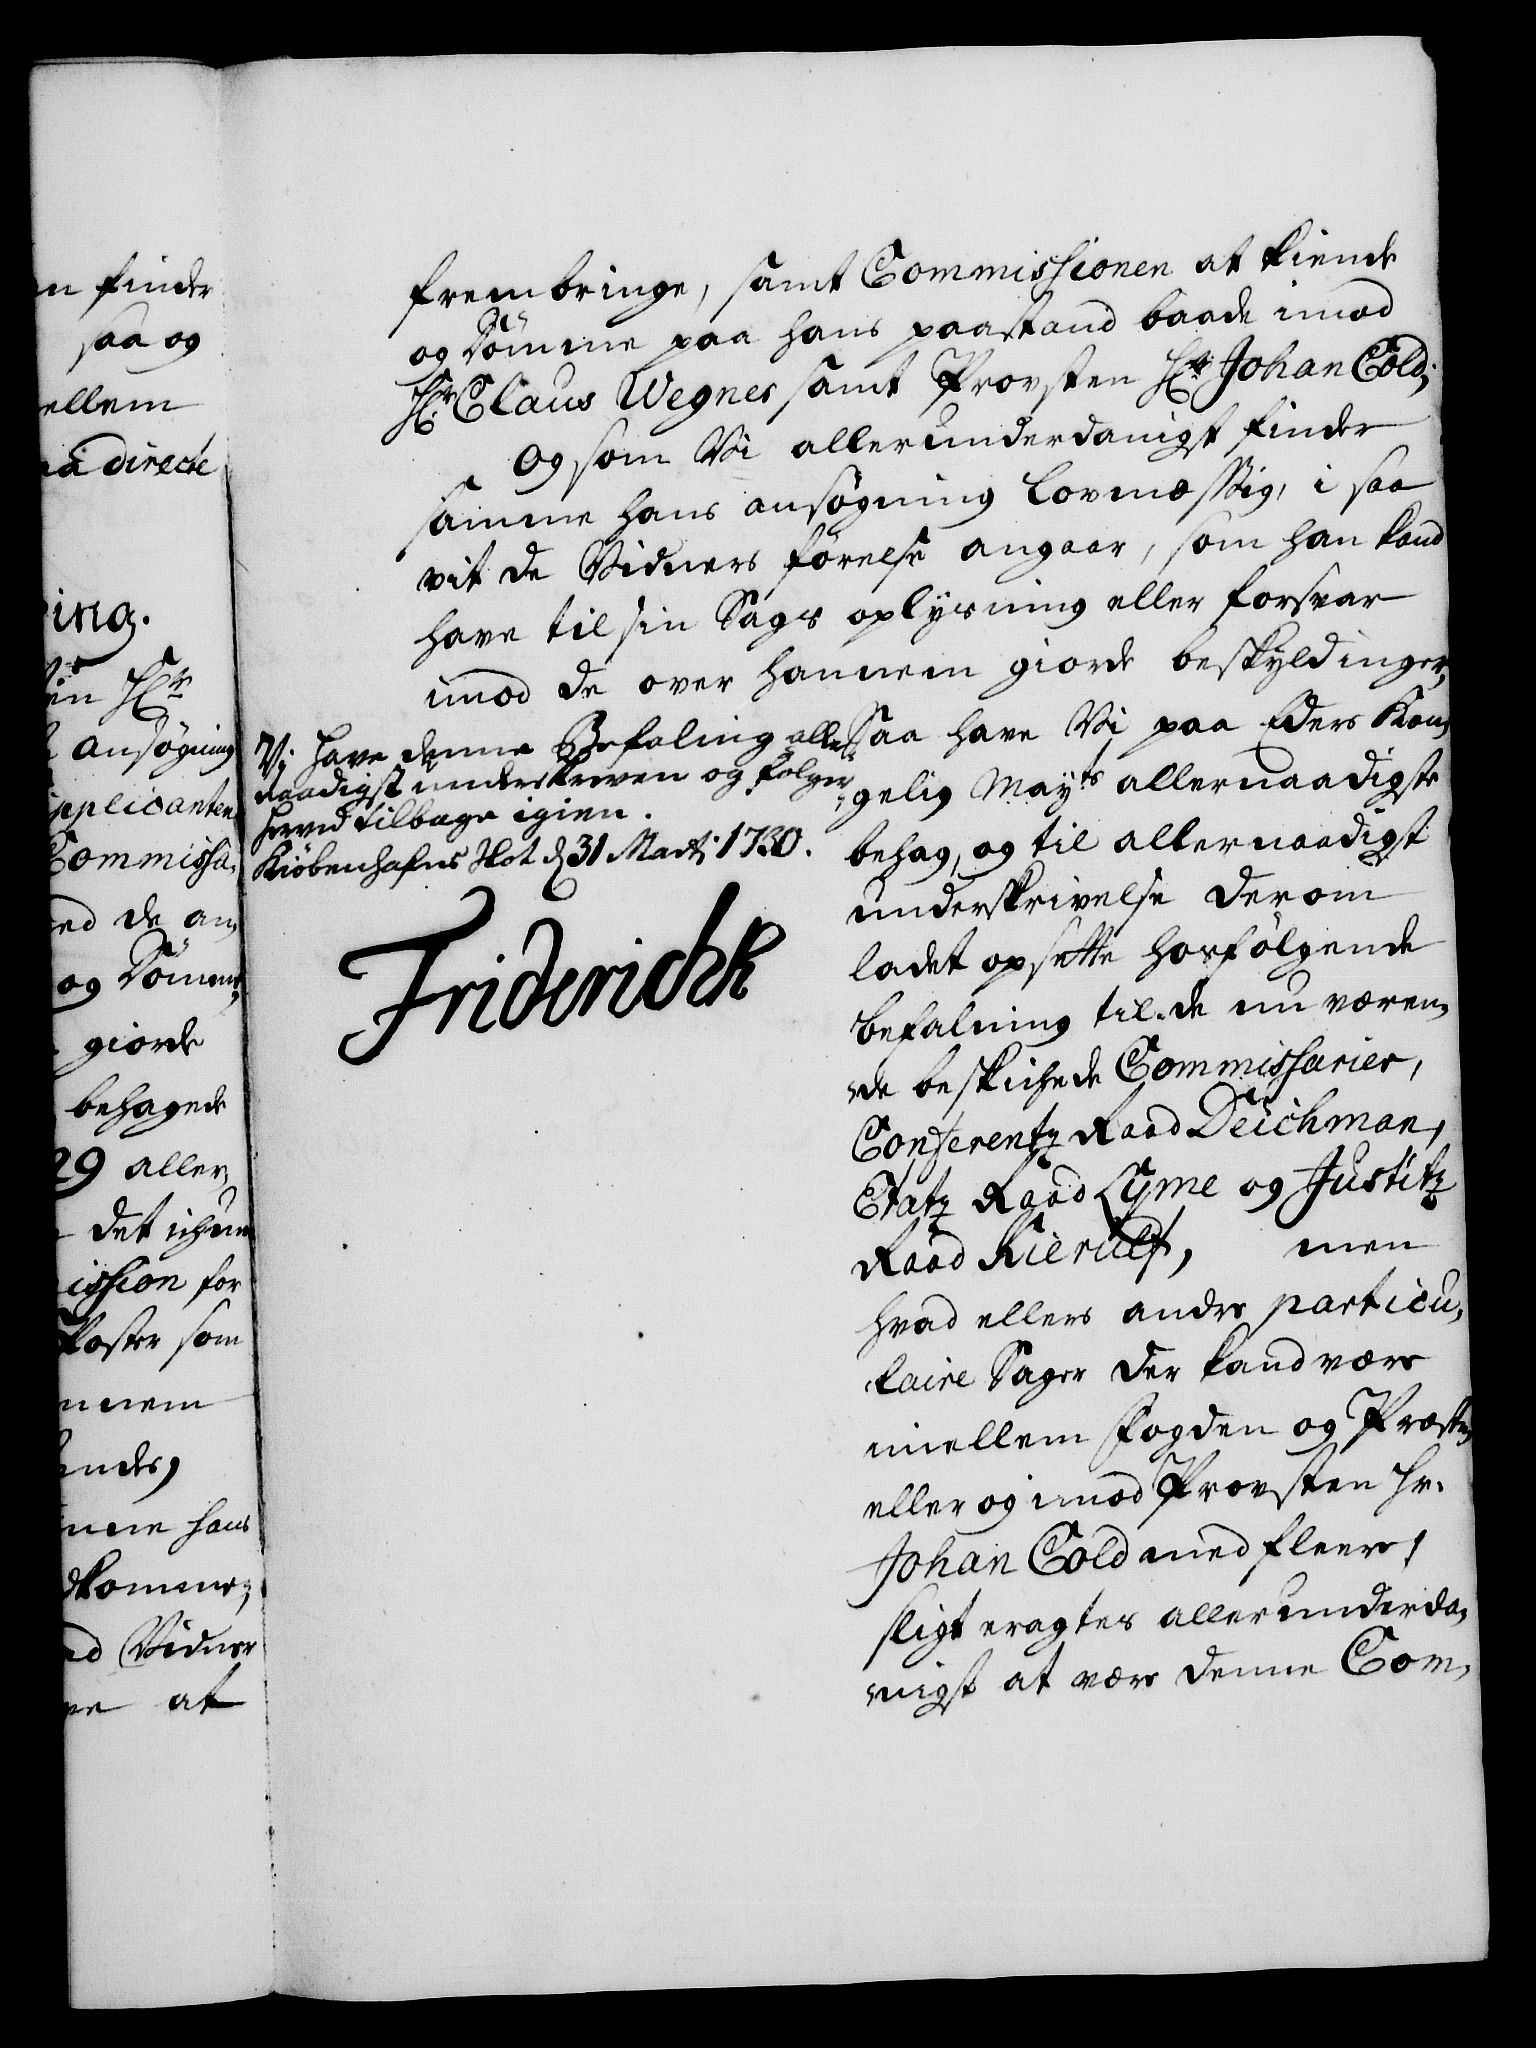 n finder
saa og
ellem
aa directe
ing.
in Hr
ansøgning
pplicanten
Commissa,
ed de an,
og Dömme,
giorde
behagede
29 aller,
det ichun
ission for
Poster som
nnem
andes,
nne hans
dkomme,
ad Vidner
ve at
frembringe, samt Commissionen at kiende
og Dömme paa hans paastand baade imod
Hr. Claus Wegner samt Provsten Hr Johan Cold;
Og som Vi allerunderdanigst finder
samme hans ansøgning Lovmæssig, i saa
vit de Vidners förelse angaar, som han kand
have til sin Sags oplysning eller forsvar
imod de over hannem giorde beskyldinger,
Saa have Vi paa Eders Kon,
gelig Mayts allernaadigste
behag, og til allernaadigst
underskrivelse derom
ladet opsette hosfölgende
befalning til de nu væren,
de beskichede Commissarier,
Conferentz Raad Deichman,
Etatz Raad Lyme og Justitz
Raad Kierulf, men
hvad ellers andre particu,
laire Sager der kand være
imellem Fogden og Præsten
eller og imod Provsten Hr.
Johan Cold med fleere,
sligt eragtes allerunderda,
nigst at være denne Com,
Vi have denne Befaling aller,
naadigst underskreven og følger
herved tilbage igien.
Kiöbenhafns Slot d 31 Marti 1730.
Friderich R